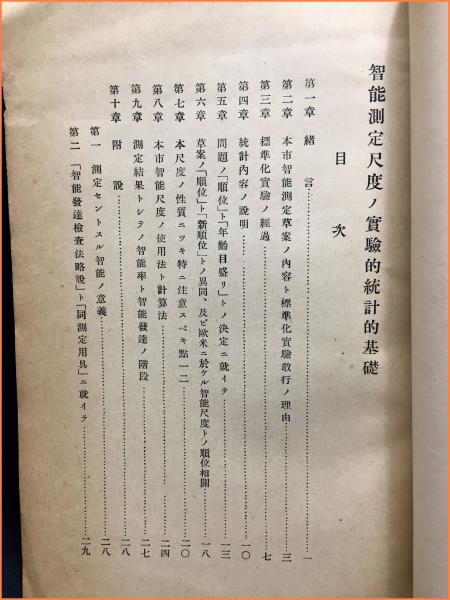 智能測定尺度ノ實驗的統計的基礎
目次
第一章 緒言……一
第二章 本市智能測定草案ノ內容ト標準化實驗敢行ノ理由……三
第三章 標準化實驗ノ經過……七
第四章 統計內容ノ說明……一〇
第五章 問題ノ「順位」ト「年齡目盛リ」トノ決定ニ就イテ……一三
第六章 草案ノ「順位」ト「新順位」トノ異同、及ビ歐米ニ於ケル智能尺度トノ順位相關……一八
第七章 本尺度ノ性質ニツキ特ニ注意スベキ點一二……二〇
第八章 本市智能尺度ノ使用法ト計算法……二四
第九章 測定結果トシテノ智能率ト智能發達ノ階段……二七
第十章 附說……二八
第一 測定セントスル智能ノ意義……二八
第二 「智能發達檢査法略說」ト「同測定用具」ニ就イテ……二九